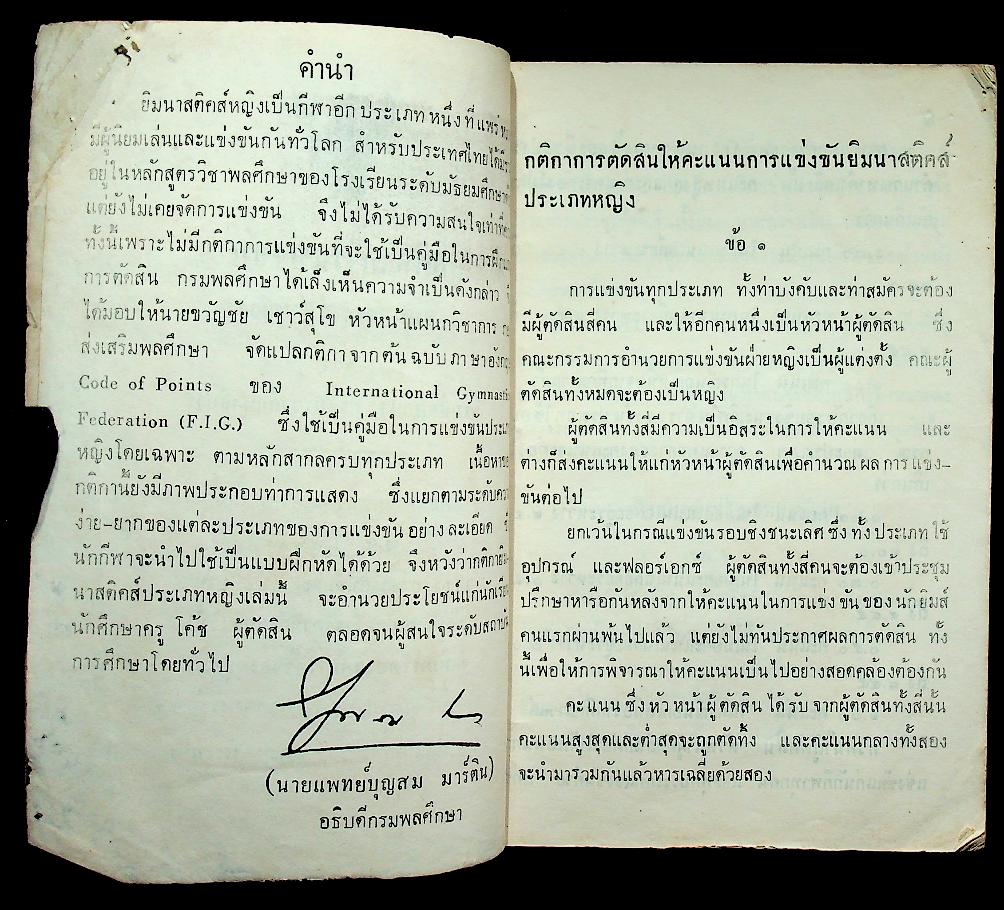 คำนำ
ยิมนาสติคส์หญิงเป็นกีฬาอีก ประ เภท หนึ่ง ที่ แพร่
มีผู้นิยมเล่นและแข่งขันกันทั่วโลก สำหรับประเทศไทยได้
อยู่ในหลักสูตรวิชาพลศึกษาของโรงเรียนระดับมัธยมศึกษา
แต่ยังไม่เคยจัดการแข่งขัน จึงไม่ได้รับความสนใจเท่าที่
ทั้งนี้เพราะไม่มีกติกาการแข่งขันที่จะใช้เป็นคู่มือในการฝึก
การตัดสิน กรมพลศึกษาได้เล็งเห็นความจำเป็นดังกล่าว
ได้มอบให้นายขวัญชัย เชาว์สุโข หัวหน้าแผนกวิชาการ
ส่งเสริมพลศึกษา จัดแปลกติกา จาก ต้น ฉบับ ภา ษาอัง
Code of Points ของ International
Federation (F.I.G.) ซึ่งใช้เป็นคู่มือในการแข่งขันประ
หญิงโดยเฉพาะ ตามหลักสากลครบทุกประเภท เนื้อหา
กติกานี้ยังมีภาพประกอบท่าการแสดง ซึ่งแยกตามระดับ
ง่าย-ยากของแต่ละประเภทของการแข่งขัน อย่าง ละเอียด
นักกีฬาจะนำไปใช้เป็นแบบฝึกหัดได้ด้วย จึงหวังว่ากติกายิม-
นาสติคส์ประเภทหญิงเล่มนี้ จะอำนวยประโยชน์แก่นักเรียน
นักศึกษาครู โค้ช ผู้ตัดสิน ตลอดจนผู้สนใจระดับสถาบัน
การศึกษาโดยทั่วไป
(นายแพทย์บุญสม มาร์ติน)
อธิบดีกรมพลศึกษา
กติกาการตัดสินให้คะแนนการแข่งขันยิมนาสติคส์
ประเภทหญิง
ข้อ ๑
การแข่งขันทุกประเภท ทั้งท่าบังคับและท่าสมัครจะต้อง
มีผู้ตัดสินสี่คน และให้อีกคนหนึ่งเป็นหัวหน้าผู้ตัดสิน ซึ่ง
คณะกรรมการอำนวยการแข่งขันฝ่ายหญิงเป็นผู้แต่งตั้ง คณะผู้
ตัดสินทั้งหมดจะต้องเป็นหญิง
ผู้ตัดสินทั้งสี่มีความเป็นอิสระในการให้คะแนน และ
ต่างก็ส่งคะแนนให้แก่หัวหน้าผู้ตัดสินเพื่อคำนวณ ผล การ แข่ง-
ขันต่อไป
ยกเว้นในกรณีแข่งขันรอบชิงชนะเลิศ ซึ่ง ทั้ง ประเภท ใช้
อุปกรณ์ และฟลอร์เอกซ์ ผู้ตัดสินทั้งสี่คนจะต้องเข้าประชุม
ปรึกษาหารือกันหลังจากให้คะแนนในการแข่ง ขัน ของ นักยิมส์
คนแรกผ่านพ้นไปแล้ว แต่ยังไม่ทันประกาศผลการตัดสิน ทั้ง
นี้เพื่อให้การพิจารณาให้คะแนนเป็นไปอย่างสอดคล้องต้องกัน
คะ แนน ซึ่ง หัว หน้า ผู้ ตัดสิน ได้ รับ จากผู้ตัดสินทั้งสี่นั้น
คะแนนสูงสุดและต่ำสุดจะถูกตัดทิ้ง และคะแนนกลางทั้งสอง
จะนำมารวมกันแล้วหารเฉลี่ยด้วยสอง